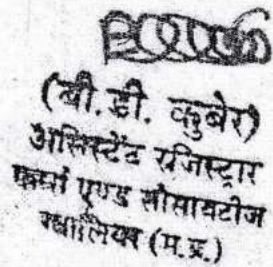 (बी. डी. कुबेर)
असिस्टेंट रजिस्ट्रार
फर्म्स एण्ड सोसायटीज
ग्वालियर (म.प्र.)